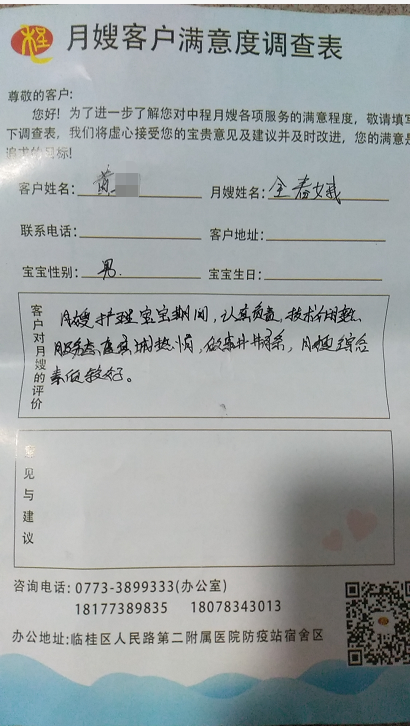 程
月嫂客户满意度调查表
尊敬的客户:
您好! 为了进一步了解您对中程月嫂各项服务的满意程度, 敬请填写
下调查表, 我们将虚心接受您的宝贵意见及建议并及时改进, 您的满意是
追求的目标!
客户姓名: 黄 月嫂姓名: 全春娥
联系电话: 客户地址:
宝宝性别: 男. 宝宝生日:
客户对月嫂的评价
月嫂护理宝宝期间, 认真负责, 技术
服务态度真诚热情, 做事井井有条, 月嫂综合
素质较好。
意见与建议
咨询电话: 0773-3899333(办公室)
18177389835 18078343013
办公地址: 临桂区人民路第二附属医院防疫站宿舍区